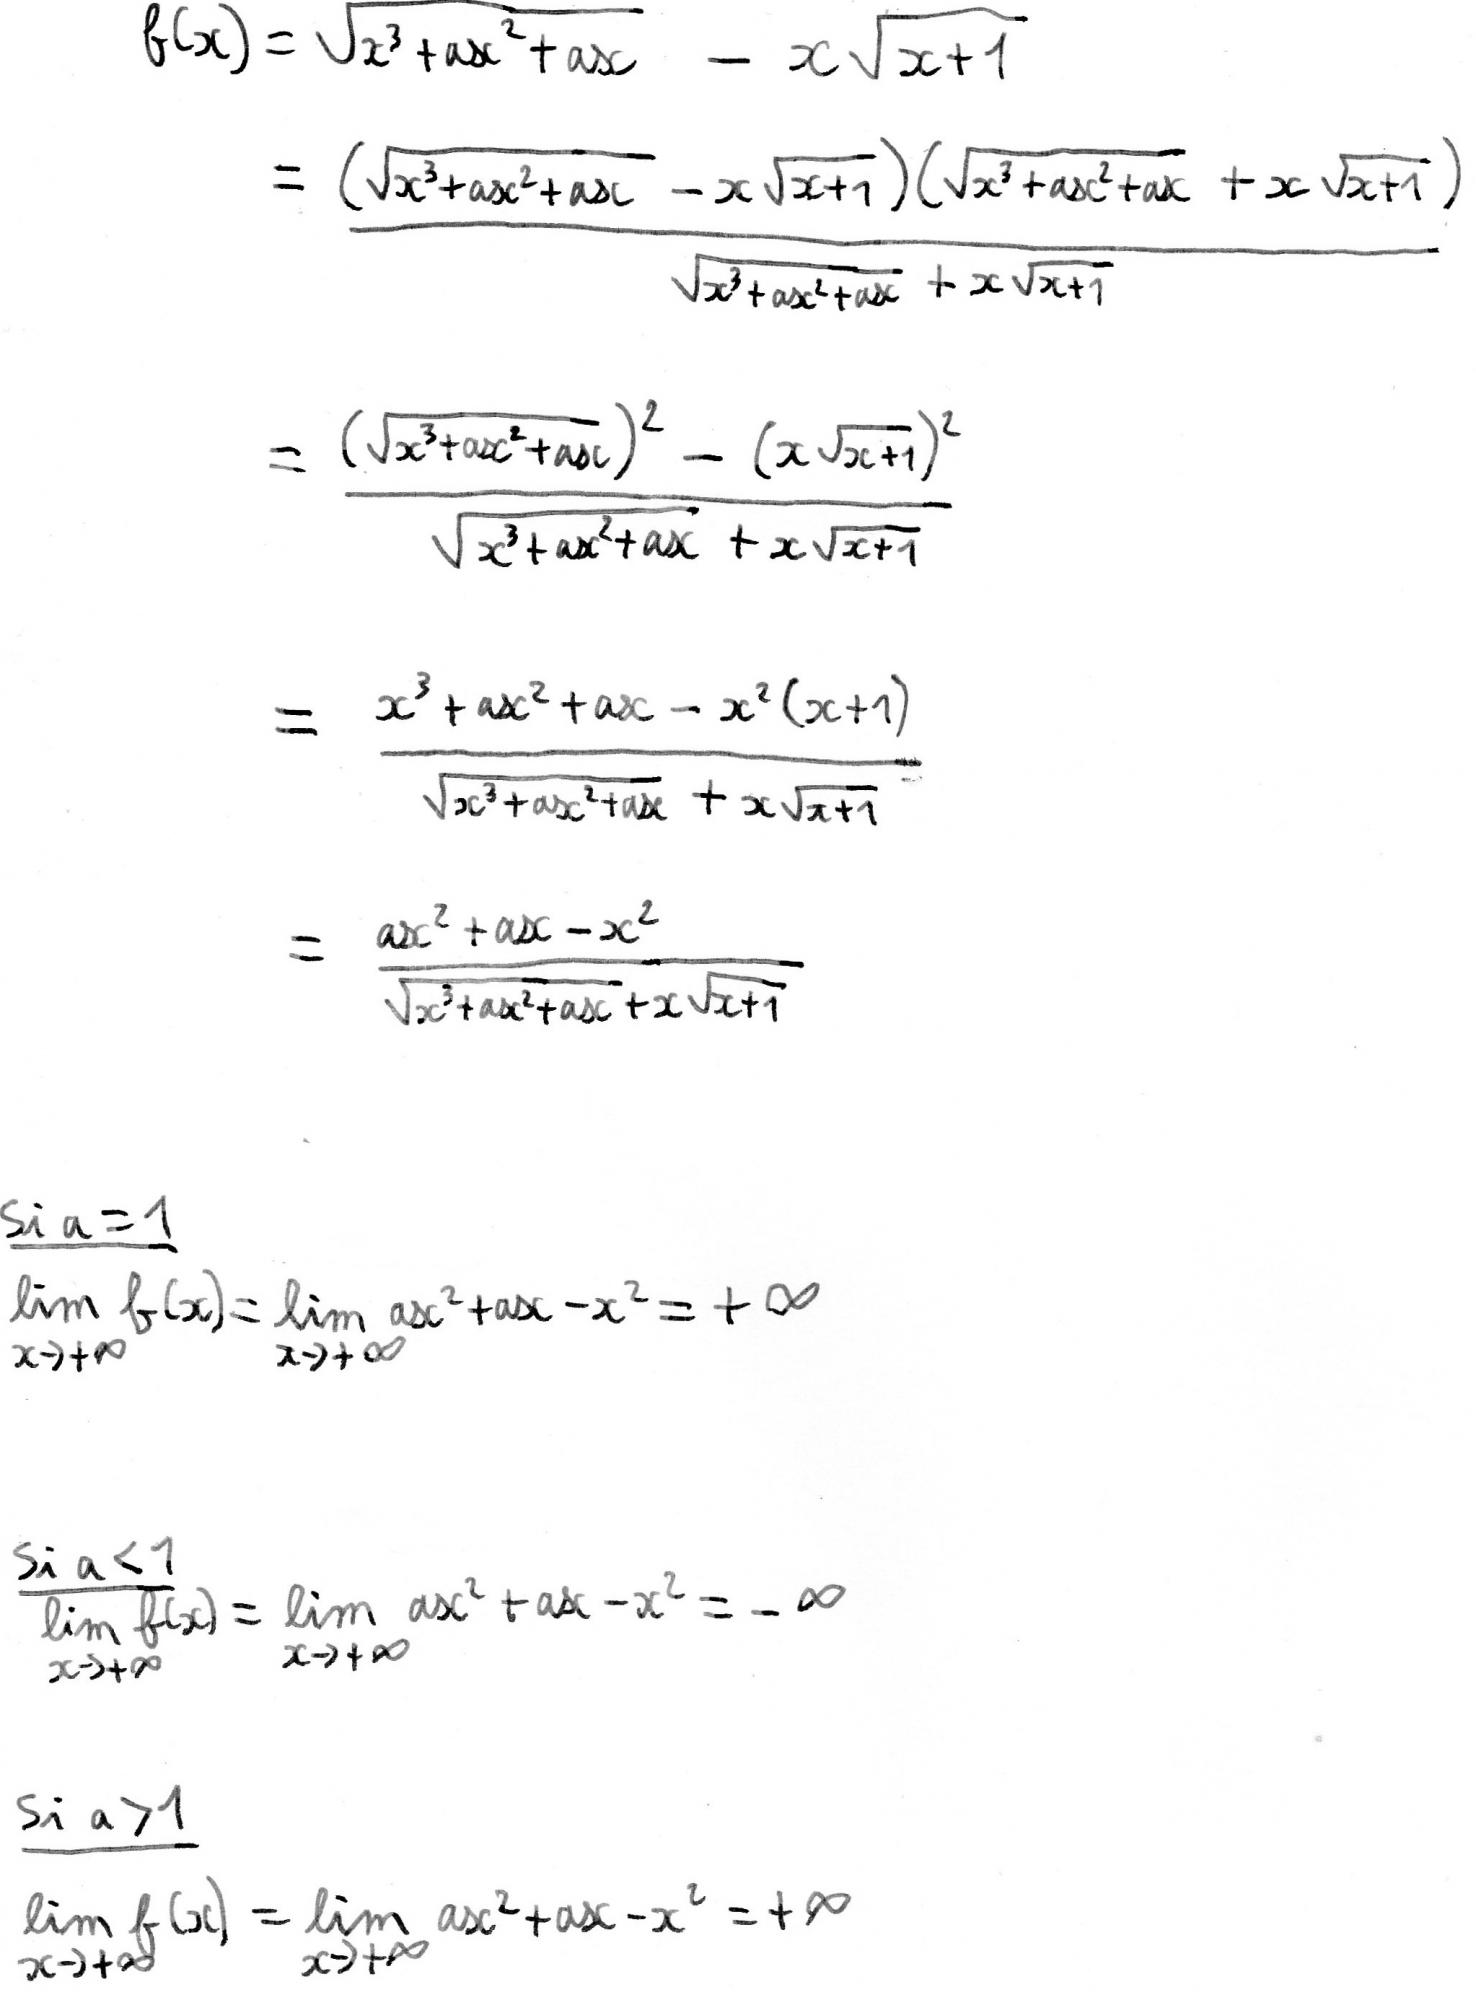 f(x) = √(x³+ax²+ax) - x√(x+1)
= (√(x³+ax²+ax) - x√(x+1))(√(x³+ax²+ax) + x√(x+1)) / (√(x³+ax²+ax) + x√(x+1))
= ((√(x³+ax²+ax))² - (x√(x+1))²) / (√(x³+ax²+ax) + x√(x+1))
= (x³+ax²+ax - x²(x+1)) / (√(x³+ax²+ax) + x√(x+1))
= (ax²+ax-x²) / (√(x³+ax²+ax) + x√(x+1))
Si a=1
lim x→+∞ f(x) = lim x→+∞ ax²+ax-x² = +∞
Si a<1
lim x→+∞ f(x) = lim x→+∞ ax²+ax-x² = -∞
Si a>1
lim x→+∞ f(x) = lim x→+∞ ax²+ax-x² = +∞